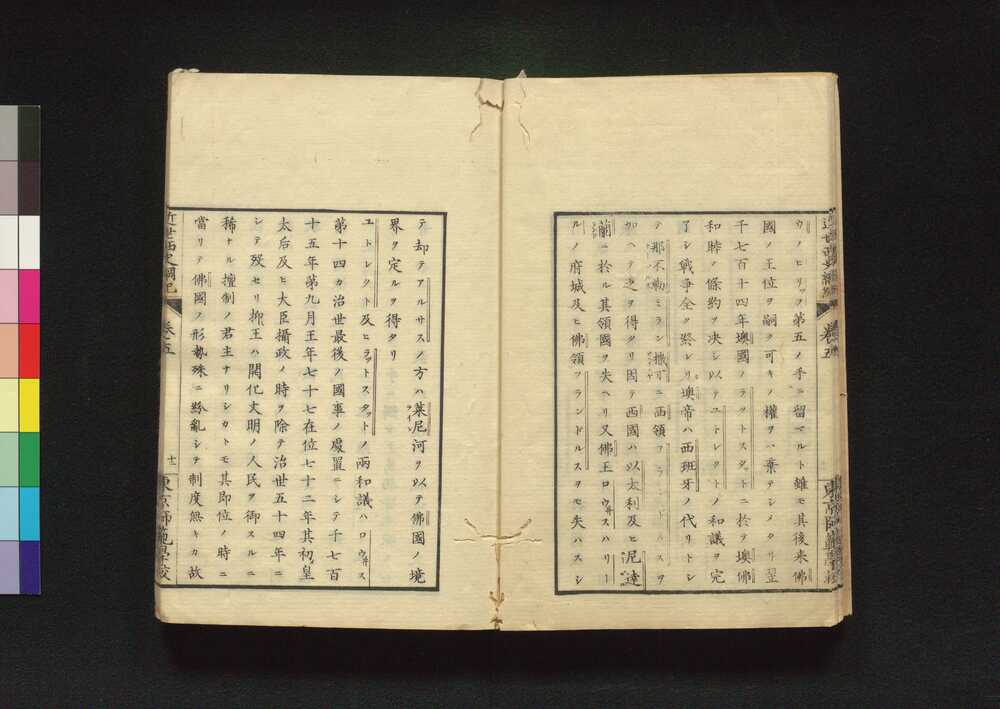 ウノヒリップ第五ノ手ニ留マルト雖モ其後来佛
國ノ王位ヲ嗣ク可キノ權ヲハ棄テシメタリ翌
千七百十四年墺國ノラットスタットニ於テ墺佛
和睦ノ條約ヲ决シ以テユトレクトノ和議ヲ完
了シ戦争全ク終レリ墺帝ハ西班牙ノ代リトシ
テ那不勒ミラン 西領フランドルスヲ
加ヘテ之ヲ得タリ因テ西國ハ以太利及ヒ泥達
蘭ニ於ル其領國ヲ失ヘリ又佛王ロウ井スハリー
ルノ府城及ヒ佛領フランドルスヲモ失ハスシ
近世西史綱紀
卷五
東京師範學校
テ却テアルサスノ方ハ莱尼河ヲ以テ佛國ノ境
ライン
界ヲ定ルヲ得タリ
ユトレクト及ヒラットスタットノ兩和議ハロウ井ス
第十四カ治世最後ノ國事ノ處置ニシテ千七百
十五年第九月王年七十七在位七十二年其初メ皇
太后及ヒ大臣攝政ノ時ヲ除テ治世五十四年ニ
シテ殁セリ抑王ハ開化文明ノ人民ヲ御スルニ
稀ナル擅制ノ君主ナリシカトモ其即位ノ時ニ
當リテ佛國ノ形勢殊ニ紛亂シテ制度無キカ故
近世西史綱紀
卷五
十三
東京師範學校